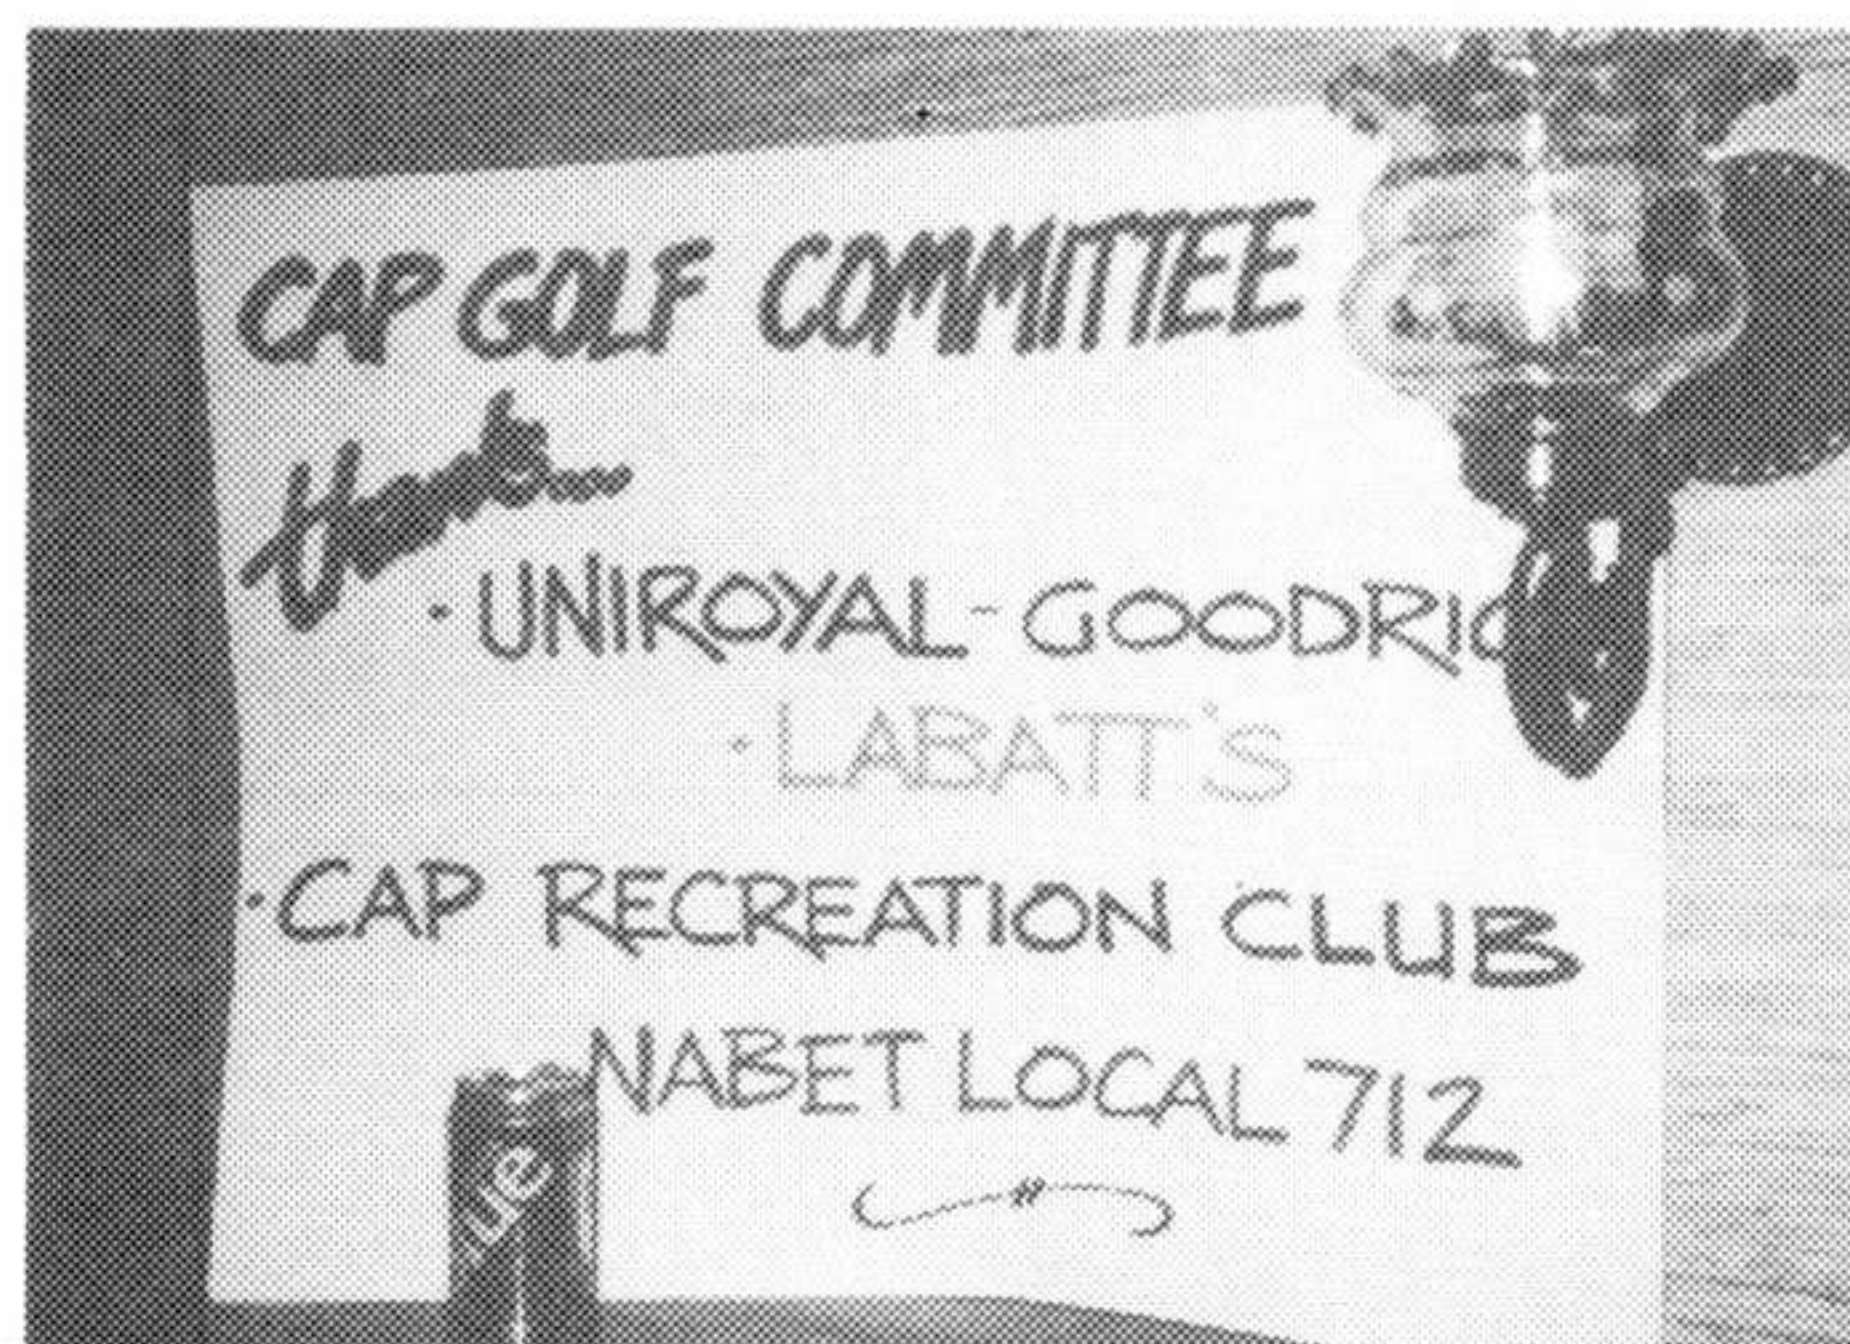 CAP GOLF COMMITTEE
Thanks...
· UNIROYAL - GOODRIC
· LABATT'S
· CAP RECREATION CLUB
NABET LOCAL 712